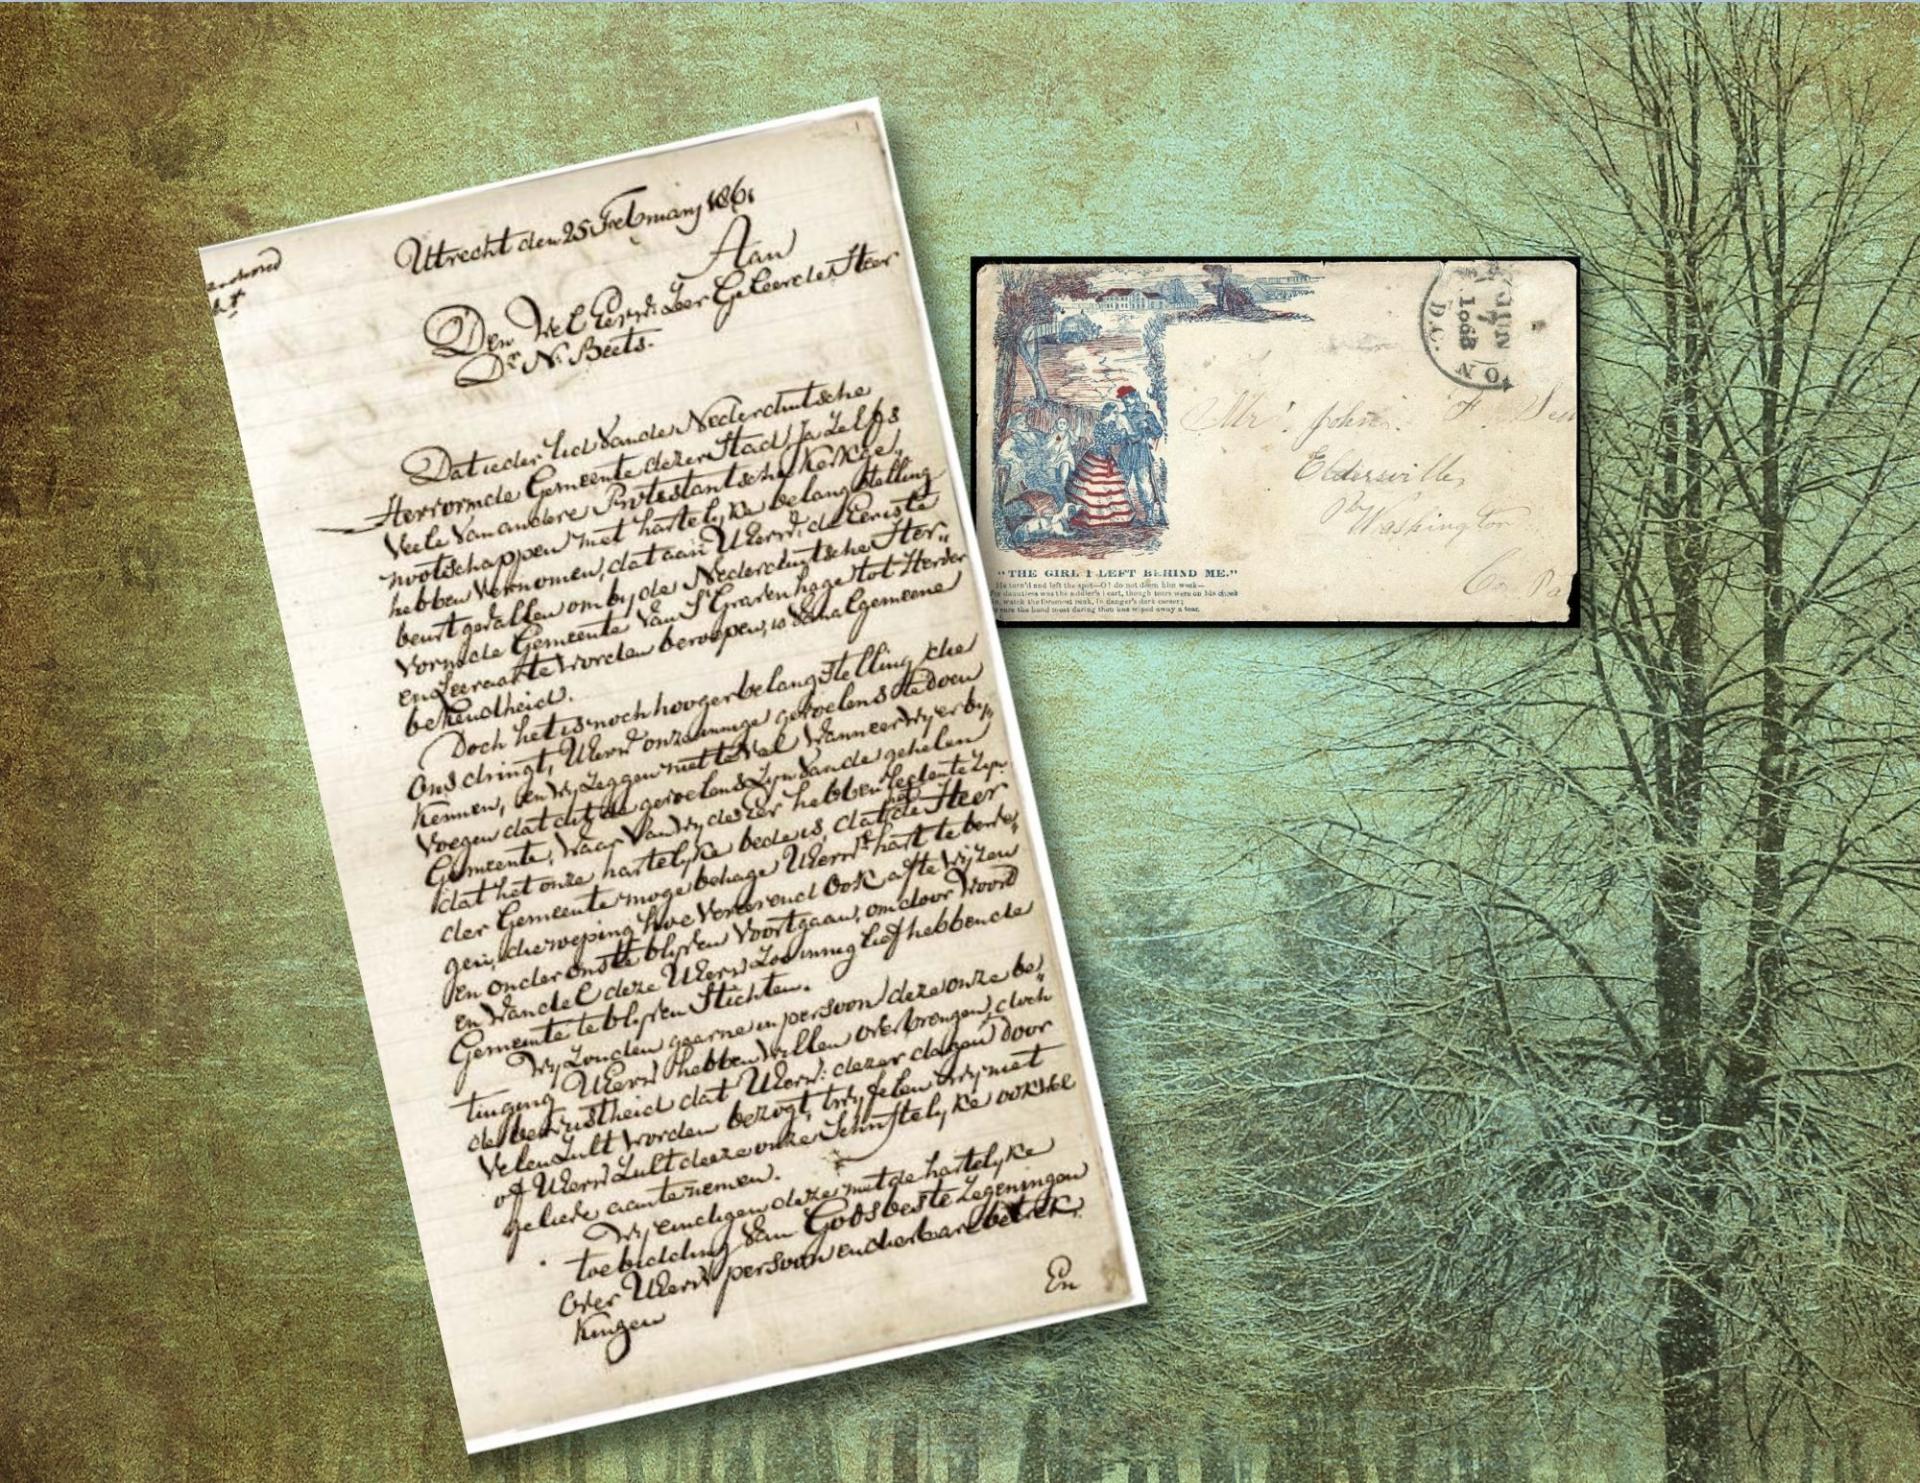 Utrecht den 25 Februarij 1861
Aan
Den Wel Eerw: Zeer Geleerden Heer
Dr. N. Beets.
Dat ieder lid van de Nederduitsche
Hervormde Gemeente dezer Stad, ja zelfs
veele van andere Protestantsche Kerkge„
nootschappen met hartelyke belangstelling
hebben vernomen, dat aan UEerw: de Eerste
beurt gevallen om by de Nederduitsche Her„
vormde Gemeente van S'Gravenhage tot Herder
en Leeraar te worden beroepen, is van algemeene
bekendheid.
Doch het is noch hooger belangstelling die
Ons dringt, UEerw onze innige gevoelens te doen
kennen, en wy zeggen niet te veel wanneer wy er by„
voegen dat dit de gevoelens zyn van de geheelen
Gemeente, waar van wy de Eer hebben Leden te zyn
dat het onze hartelyke bede is, dat de Heer
der Gemeente moge behage UEerws hart te bewe„
gen, die roeping hoe vereerend ook af te wyzen
en onder ons te blyven voortgaan, om door woord
en wandel deze UEerw zoo innig lief hebbende
Gemeente te blyven Stichten.
Wy zouden gaarne in persoon deze onze be„
tuiging UEerw hebben willen overbrengen, doch
de bewustheid dat UEerw: dezer dagen door
velen zult worden bezogt, twyfelen wy niet
of UEerw zult deeze onze Schriftelyke ook wel
geliefe aan te nemen.
Wy eindigen deze met de hartelyke
toebidding van Gods beste Zegeningen
over UEerw persoon en dierbare betrek„
kingen
En
JUN
7
1863
D.C.
Mr. John F.
Eldersville,
Washington
Co Pa
"THE GIRL I LEFT BEHIND ME."
He turn'd and left the spot—O! do not deem him weak—
dauntless was the soldier's heart, though tears were on his cheek
watch the foremost rank, in danger's dark career;
sure the hand most daring there has wiped away a tear.